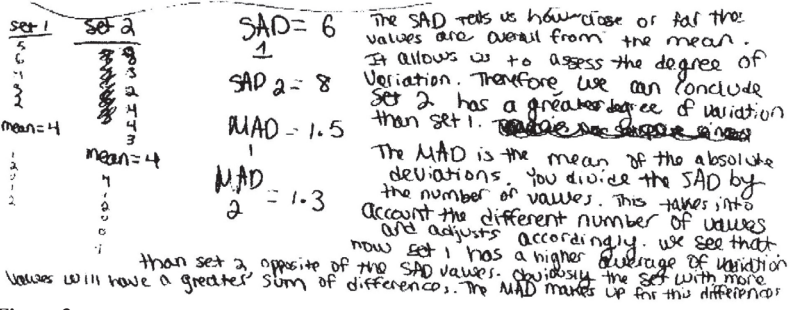 set 1
5
6
4
3
2
mean=4
1
2
0
1
2
set 2
8
3
2
4
4
3
mean=4
4
1
2
0
0
1
SAD = 6
1
SAD 2 = 8
MAD = 1.5
1
MAD
2 = 1.3
The SAD tells us how close or far the
values are overall from the mean.
It allows us to assess the degree of
Variation. Therefore we can conclude
Set 2 has a greater degree of variation
than set 1.
The MAD is the mean of the absolute
deviations. You divide the SAD by
the number of values. This takes into
account the different number of values
and adjusts accordingly. we see that
now set 1 has a higher average of variation
than set 2, opposite of the SAD values. Obviously the set with more
values will have a greater sum of differences. The MAD makes up for this differences